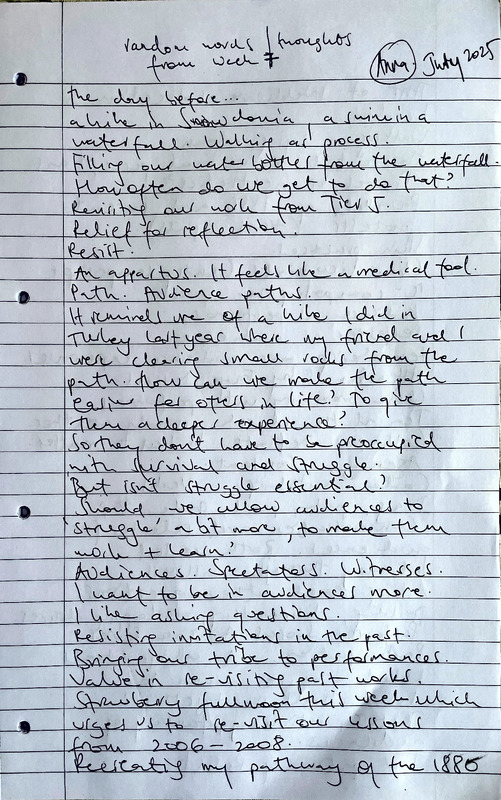 random words / thoughts
from week 7
Anna. July 2025
the day before...
a hike in Snowdonia, a swim in a
waterfall. Walking as process.
Filling our water bottles from the waterfall.
How often do we get to do that?
Revisiting our work from Tier 5.
Relief for reflection.
Resist.
An appartus. It feels like a medical tool.
Path. Audience paths.
It reminds me of a hike I did in
Turkey last year where my friend and I
were clearing small rocks from the
path. How can we make the path
easier for others in life? To give
them a deeper experience?
So they don't have to be preoccupied
with survival and struggle.
But isn't struggle essential?
Should we allow audiences to
'struggle' a bit more, to make them
work + learn?
Audiences. Spectators. Witnesses.
I want to be in audiences more.
I like asking questions.
Resisting invitations in the past.
Bringing our tribe to performances.
Value in re-visiting past works.
Strawberry full moon this week which
urges us to re-visit our lessons
from 2006 - 2008.
Recreating my pathway of the 1886